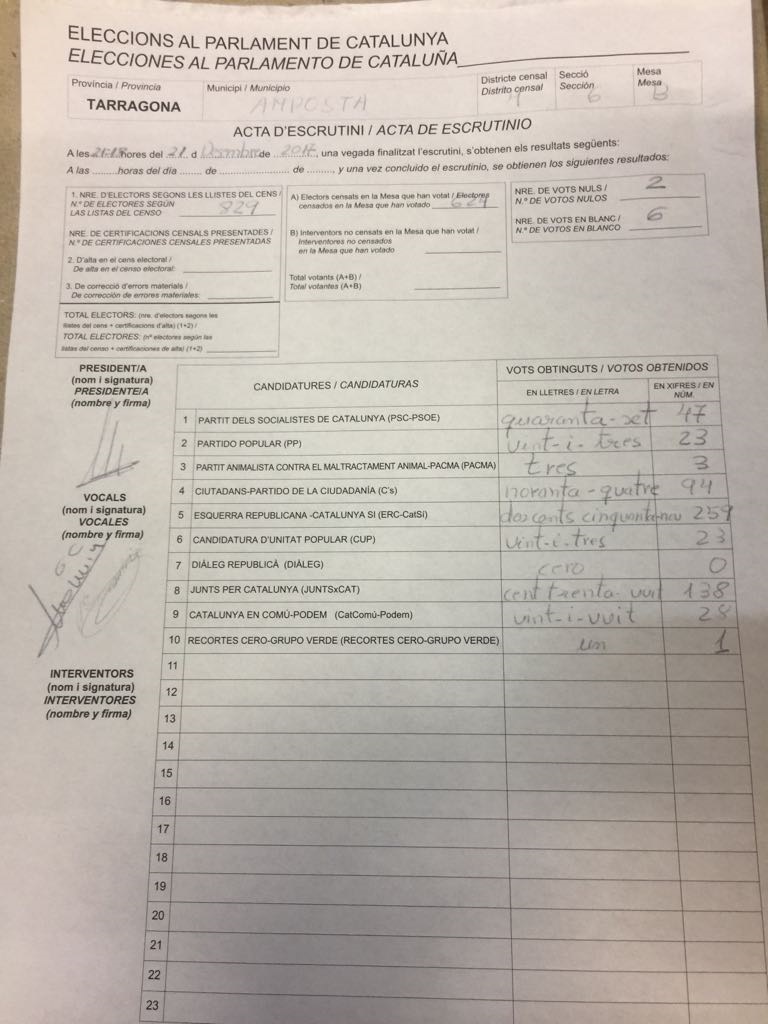 ELECCIONS AL PARLAMENT DE CATALUNYA
ELECCIONES AL PARLAMENTO DE CATALUÑA
Província / Provincia
TARRAGONA
Municipi / Municipio
AMPOSTA
Districte censal
Distrito censal
4
Secció
Sección
6
Mesa
Mesa
B
ACTA D'ESCRUTINI / ACTA DE ESCRUTINIO
A les hores del 21 d Desembre de 2017, una vegada finalitzat l'escrutini, s'obtenen els resultats següents:
A las ......... horas del día ...... de ............... de ........., y una vez concluido el escrutinio, se obtienen los siguientes resultados:
1. NRE. D'ELECTORS SEGONS LES LLISTES DEL CENS /
N.º DE ELECTORES SEGÚN
LAS LISTAS DEL CENSO 829
NRE. DE CERTIFICACIONS CENSALS PRESENTADES /
N.º DE CERTIFICACIONES CENSALES PRESENTADAS
2. D'alta en el cens electoral /
De alta en el censo electoral:
3. De correcció d'errors materials /
De corrección de errores materiales:
TOTAL ELECTORS: (nre. d'electors segons les
llistes del cens + certificacions d'alta) (1+2) /
TOTAL ELECTORES: (nº electores según las
listas del censo + certificaciones de alta) (1+2)
A) Electors censats en la Mesa que han votat / Electores
censados en la Mesa que han votado 624
B) Interventors no censats en la Mesa que han votat /
Interventores no censados
en la Mesa que han votado
Total votants (A+B) /
Total votantes (A+B)
NRE. DE VOTS NULS /
N.º DE VOTOS NULOS 2
NRE. DE VOTS EN BLANC /
N.º DE VOTOS EN BLANCO 6
PRESIDENT/A
(nom i signatura)
PRESIDENTE/A
(nombre y firma)
VOCALS
(nom i signatura)
VOCALES
(nombre y firma)
INTERVENTORS
(nom i signatura)
INTERVENTORES
(nombre y firma)
CANDIDATURES / CANDIDATURAS
VOTS OBTINGUTS / VOTOS OBTENIDOS
EN LLETRES / EN LETRA
EN XIFRES / EN NÚM.
1 PARTIT DELS SOCIALISTES DE CATALUNYA (PSC-PSOE) quaranta-set 47
2 PARTIDO POPULAR (PP) vint-i-tres 23
3 PARTIT ANIMALISTA CONTRA EL MALTRACTAMENT ANIMAL-PACMA (PACMA) tres 3
4 CIUTADANS-PARTIDO DE LA CIUDADANÍA (C's) noranta-quatre 94
5 ESQUERRA REPUBLICANA -CATALUNYA SI (ERC-CatSi) doscents cinquanta-nou 259
6 CANDIDATURA D'UNITAT POPULAR (CUP) vint-i-tres 23
7 DIÀLEG REPUBLICÀ (DIÀLEG) cero 0
8 JUNTS PER CATALUNYA (JUNTSxCAT) cent trenta-vuit 138
9 CATALUNYA EN COMÚ-PODEM (CatComú-Podem) vint-i-vuit 28
10 RECORTES CERO-GRUPO VERDE (RECORTES CERO-GRUPO VERDE) un 1
11
12
13
14
15
16
17
18
19
20
21
22
23